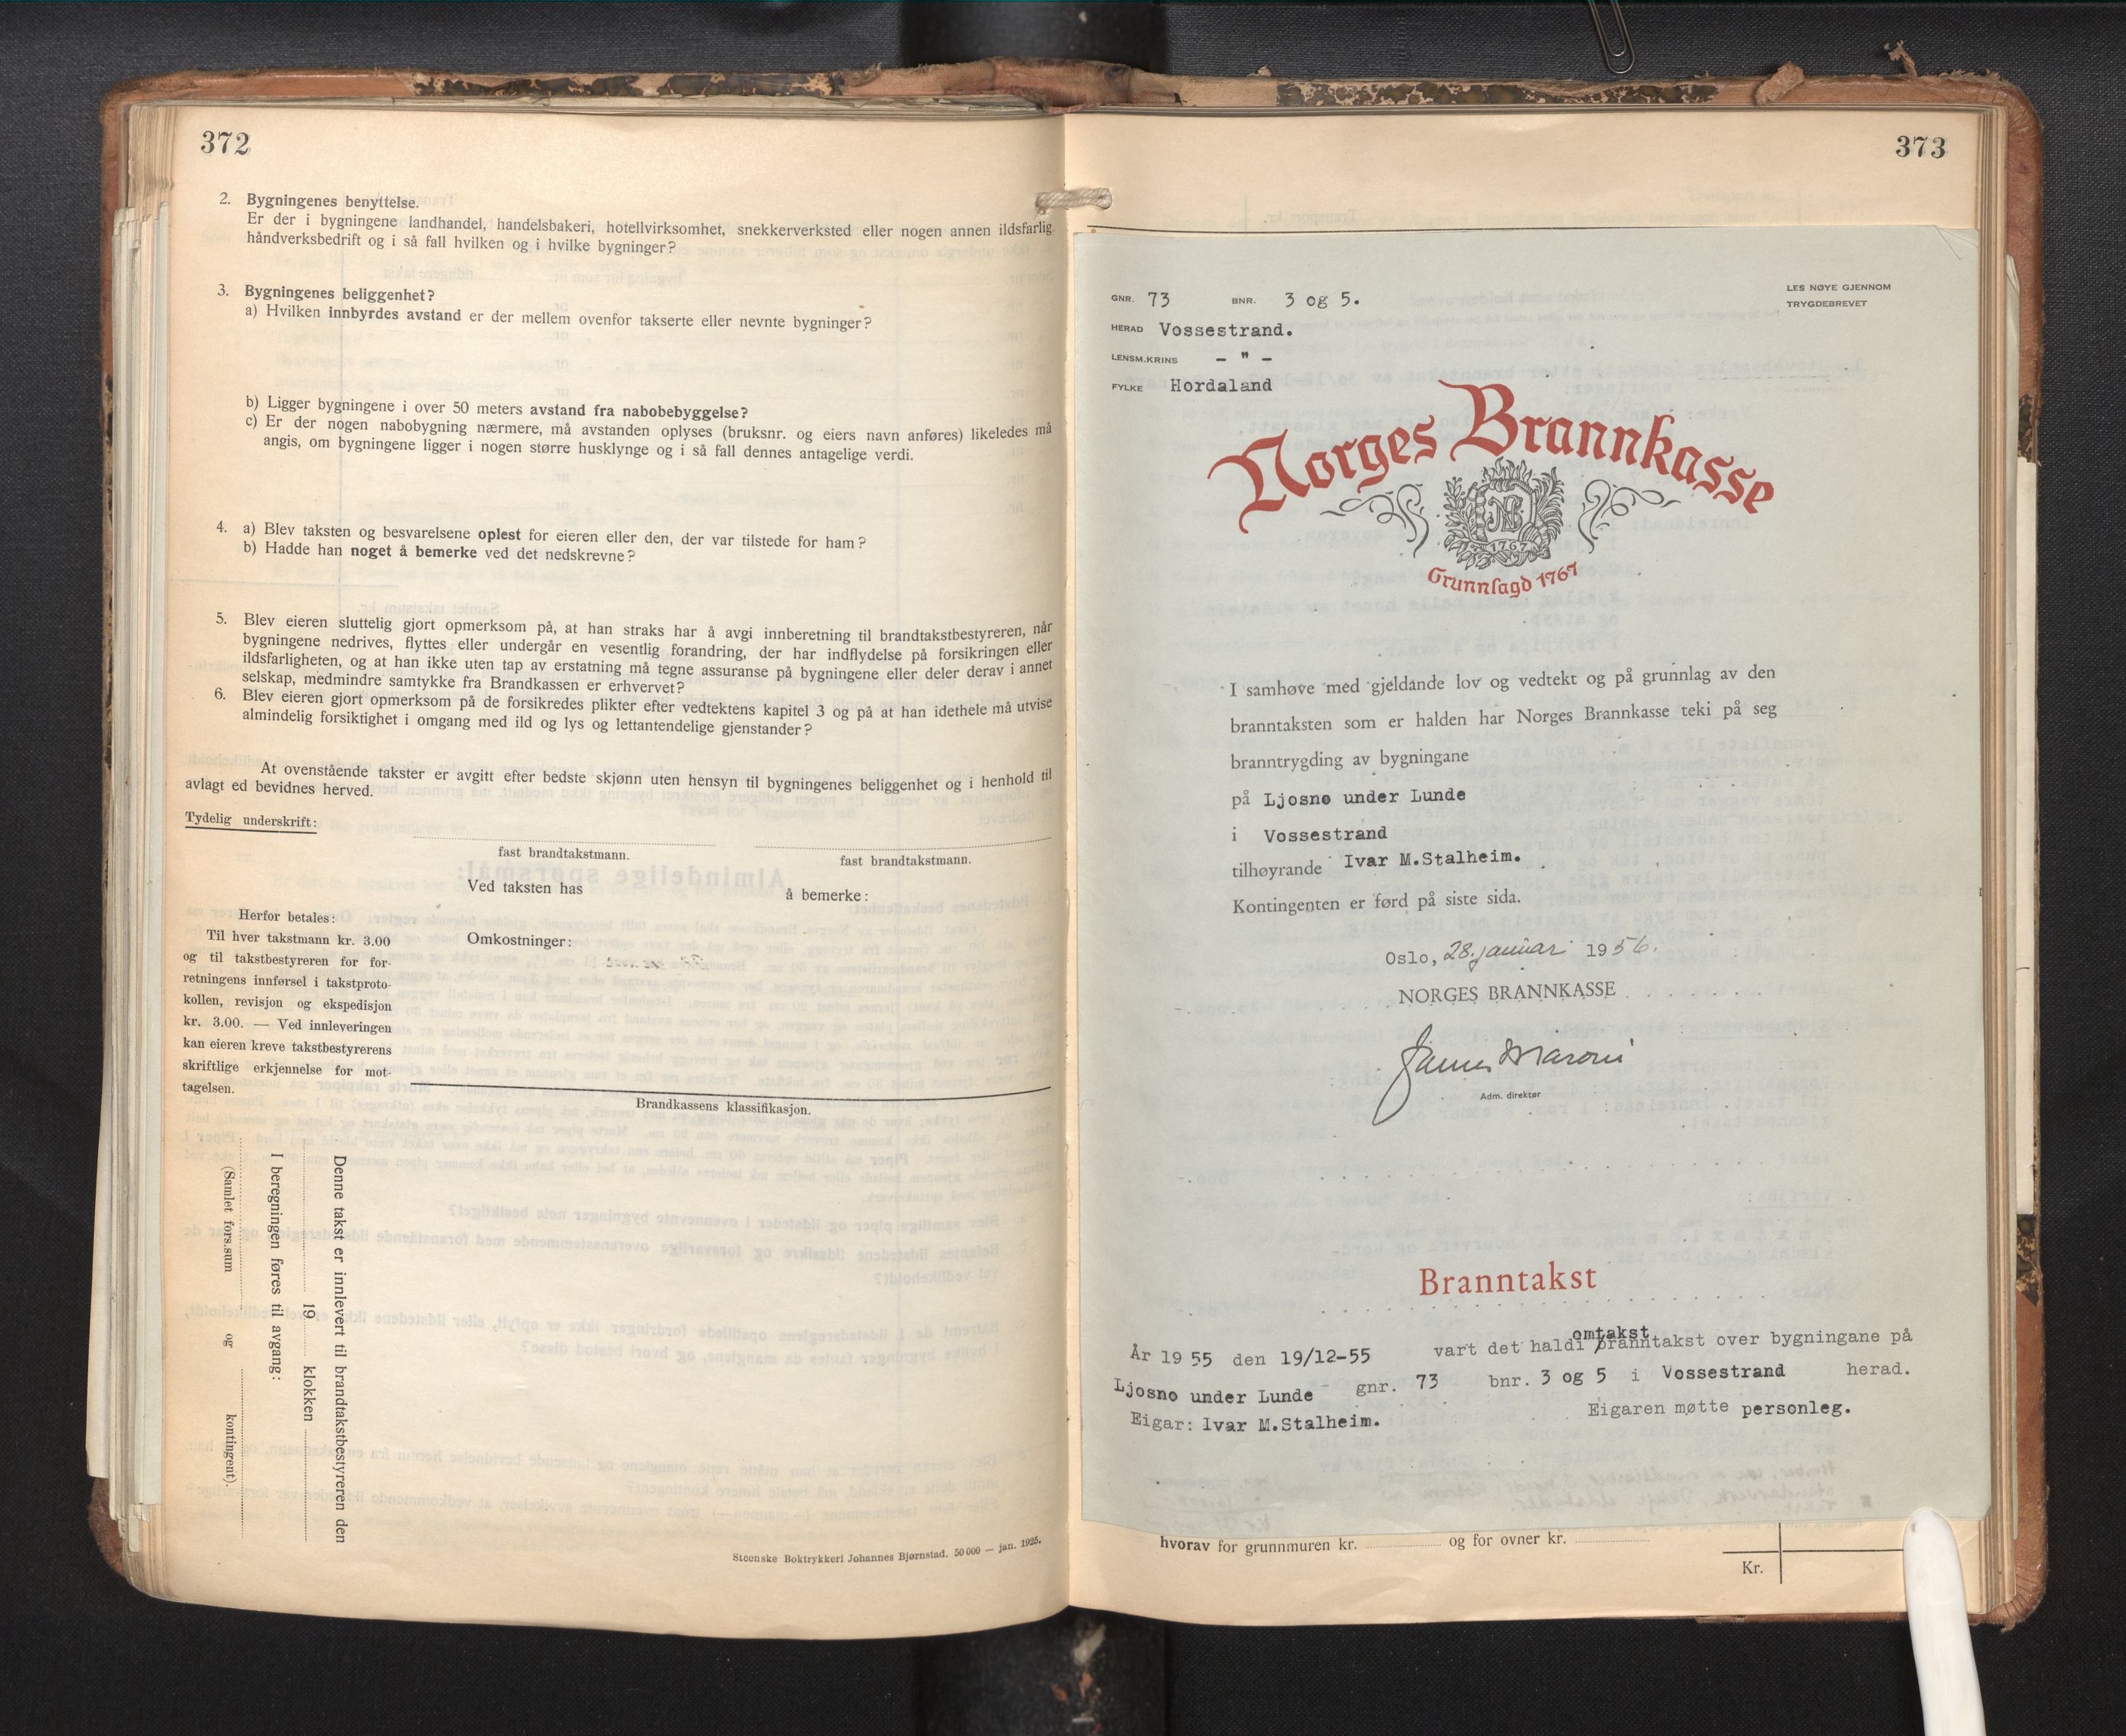 372
2. Bygningenes benyttelse.
Er der i bygningene landhandel, handelsbakeri, hotellvirksomhet, snekkerverksted eller nogen annen ildsfarlig
håndverksbedrift og i så fall hvilken og i hvilke bygninger?
3. Bygningenes beliggenhet?
a) Hvilken innbyrdes avstand er der mellem ovenfor takserte eller nevnte bygninger?
b) Ligger bygningene i over 50 meters avstand fra nabobebyggelse?
c) Er der nogen nabobygning nærmere, må avstanden oplyses (bruksnr. og eiers navn anføres) likeledes må
angis, om bygningene ligger i nogen større husklynge og i så fall dennes antagelige verdi.
4. a) Blev taksten og besvarelsene oplest for eieren eller den, der var tilstede for ham?
b) Hadde han noget å bemerke ved det nedskrevne?
5. Blev eieren sluttelig gjort opmerksom på, at han straks har å avgi innberetning til brandtakstbestyreren, når
bygningene nedrives, flyttes eller undergår en vesentlig forandring, der har indflydelse på forsikringen eller
ildsfarligheten, og at han ikke uten tap av erstatning må tegne assuranse på bygningene eller deler derav i annet
selskap, medmindre samtykke fra Brandkassen er erhvervet?
6. Blev eieren gjort opmerksom på de forsikredes plikter efter vedtektens kapitel 3 og på at han idethele må utvise
almindelig forsiktighet i omgang med ild og lys og lettantendelige gjenstander?
At ovenstående takster er avgitt efter bedste skjønn uten hensyn til bygningenes beliggenhet og i henhold til
avlagt ed bevidnes herved.
Tydelig underskrift:
fast brandtakstmann. fast brandtakstmann.
Ved taksten has å bemerke:
Herfor betales:
Til hver takstmann kr. 3.00
og til takstbestyreren for for-
retningens innførsel i takstproto-
kollen, revisjon og ekspedisjon
kr. 3.00. — Ved innleveringen
kan eieren kreve takstbestyrerens
skriftlige erkjennelse for mot-
tagelsen.
Omkostninger:
Brandkassens klassifikasjon.
Denne takst er innlevert til brandtakstbestyreren den
19 klokken
I beregningen føres til avgang:
(Samlet fors.sum og kontingent).
Steenske Boktrykkeri Johannes Bjørnstad. 50 000 — jan. 1925.
373
GNR. 73 BNR. 3 og 5.
LES NØYE GJENNOM
TRYGDEBREVET
HERAD Vossestrand.
LENSM.KRINS - " -
FYLKE Hordaland
Norges Brannkasse
NB
1767
Grunnlagd 1767
I samhøve med gjeldande lov og vedtekt og på grunnlag av den
branntaksten som er halden har Norges Brannkasse teki på seg
branntrygding av bygningane
på Ljosno under Lunde
i Vossestrand
tilhøyrande Ivar M.Stalheim.
Kontingenten er førd på siste sida.
Oslo, 28. januar 1956.
NORGES BRANNKASSE
Adm. direktør
Branntakst
omtakst
År 1955 den 19/12-55 vart det haldi branntakst over bygningane på
Ljosno under Lunde gnr. 73 bnr. 3 og 5 i Vossestrand herad.
Eigar: Ivar M.Stalheim. Eigaren møtte personleg.
hvorav for grunnmuren kr. og for ovner kr.
Kr.